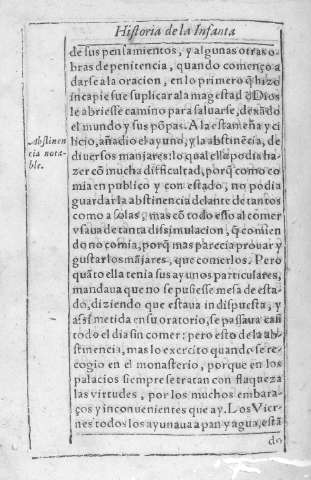 Historia de la Infanta
de sus pensamientos, y algunas otras o-
bras de penitencia, quando començo a
darse a la oracion, en lo primero q̃ hizo
incapie fue suplicar a la magestad d̃ Dios
le abriesse camino para saluarse, dexãdo
el mundo y sus põpas. A la estameña y ci
licio, añadio el ayuno, y la abstinẽcia, de
diuersos manjares: lo qual ella podia ha-
zer cõ mucha difficultad, porq̃ como co
mia en publico y con estado, no podia
guardar la abstinencia delante de tantos
como a solas, mas cõ todo esso al comer
vsaua de tanta dissimulacion, q̃ comien
do no comia, porq̃ mas parecia prouar y
gustar los mãjares, que comerlos. Pero
quãto ella tenia sus ayunos particulares,
mandaua que no se pusiesse mesa de esta-
do, diziendo que estaua indispuesta, y
assi metida en su oratorio, se passaua casi
todo el dia sin comer; pero esto de la abs-
tinencia, mas lo exercito quando se re-
cogio en el monasterio, porque en los
palacios siempre se tratan con flaqueza
las virtudes, por los muchos embara-
ços y inconuenientes que ay. Los Vier-
nes todos los ayunaua a pan y agua, estã
do
Abstinen
cia nota-
ble.